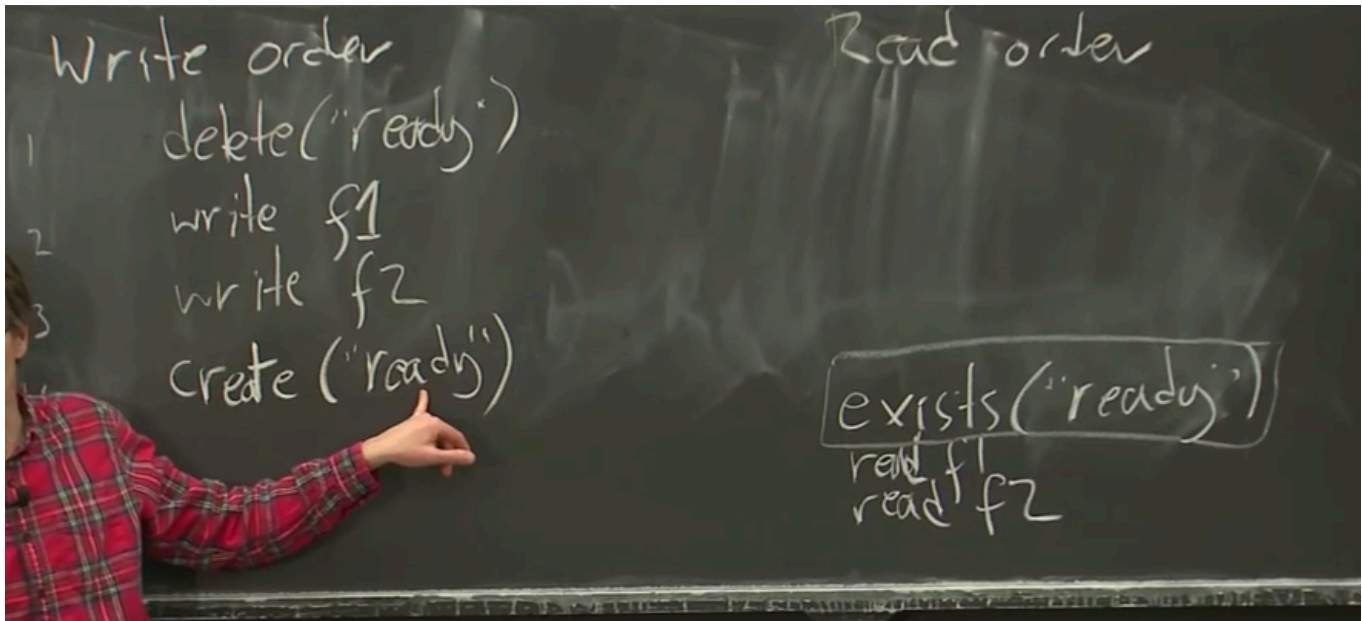 Write order
1 delete("ready")
2 write f1
3 write f2
create ("ready")
Read order
exists("ready")
read f1
read f2